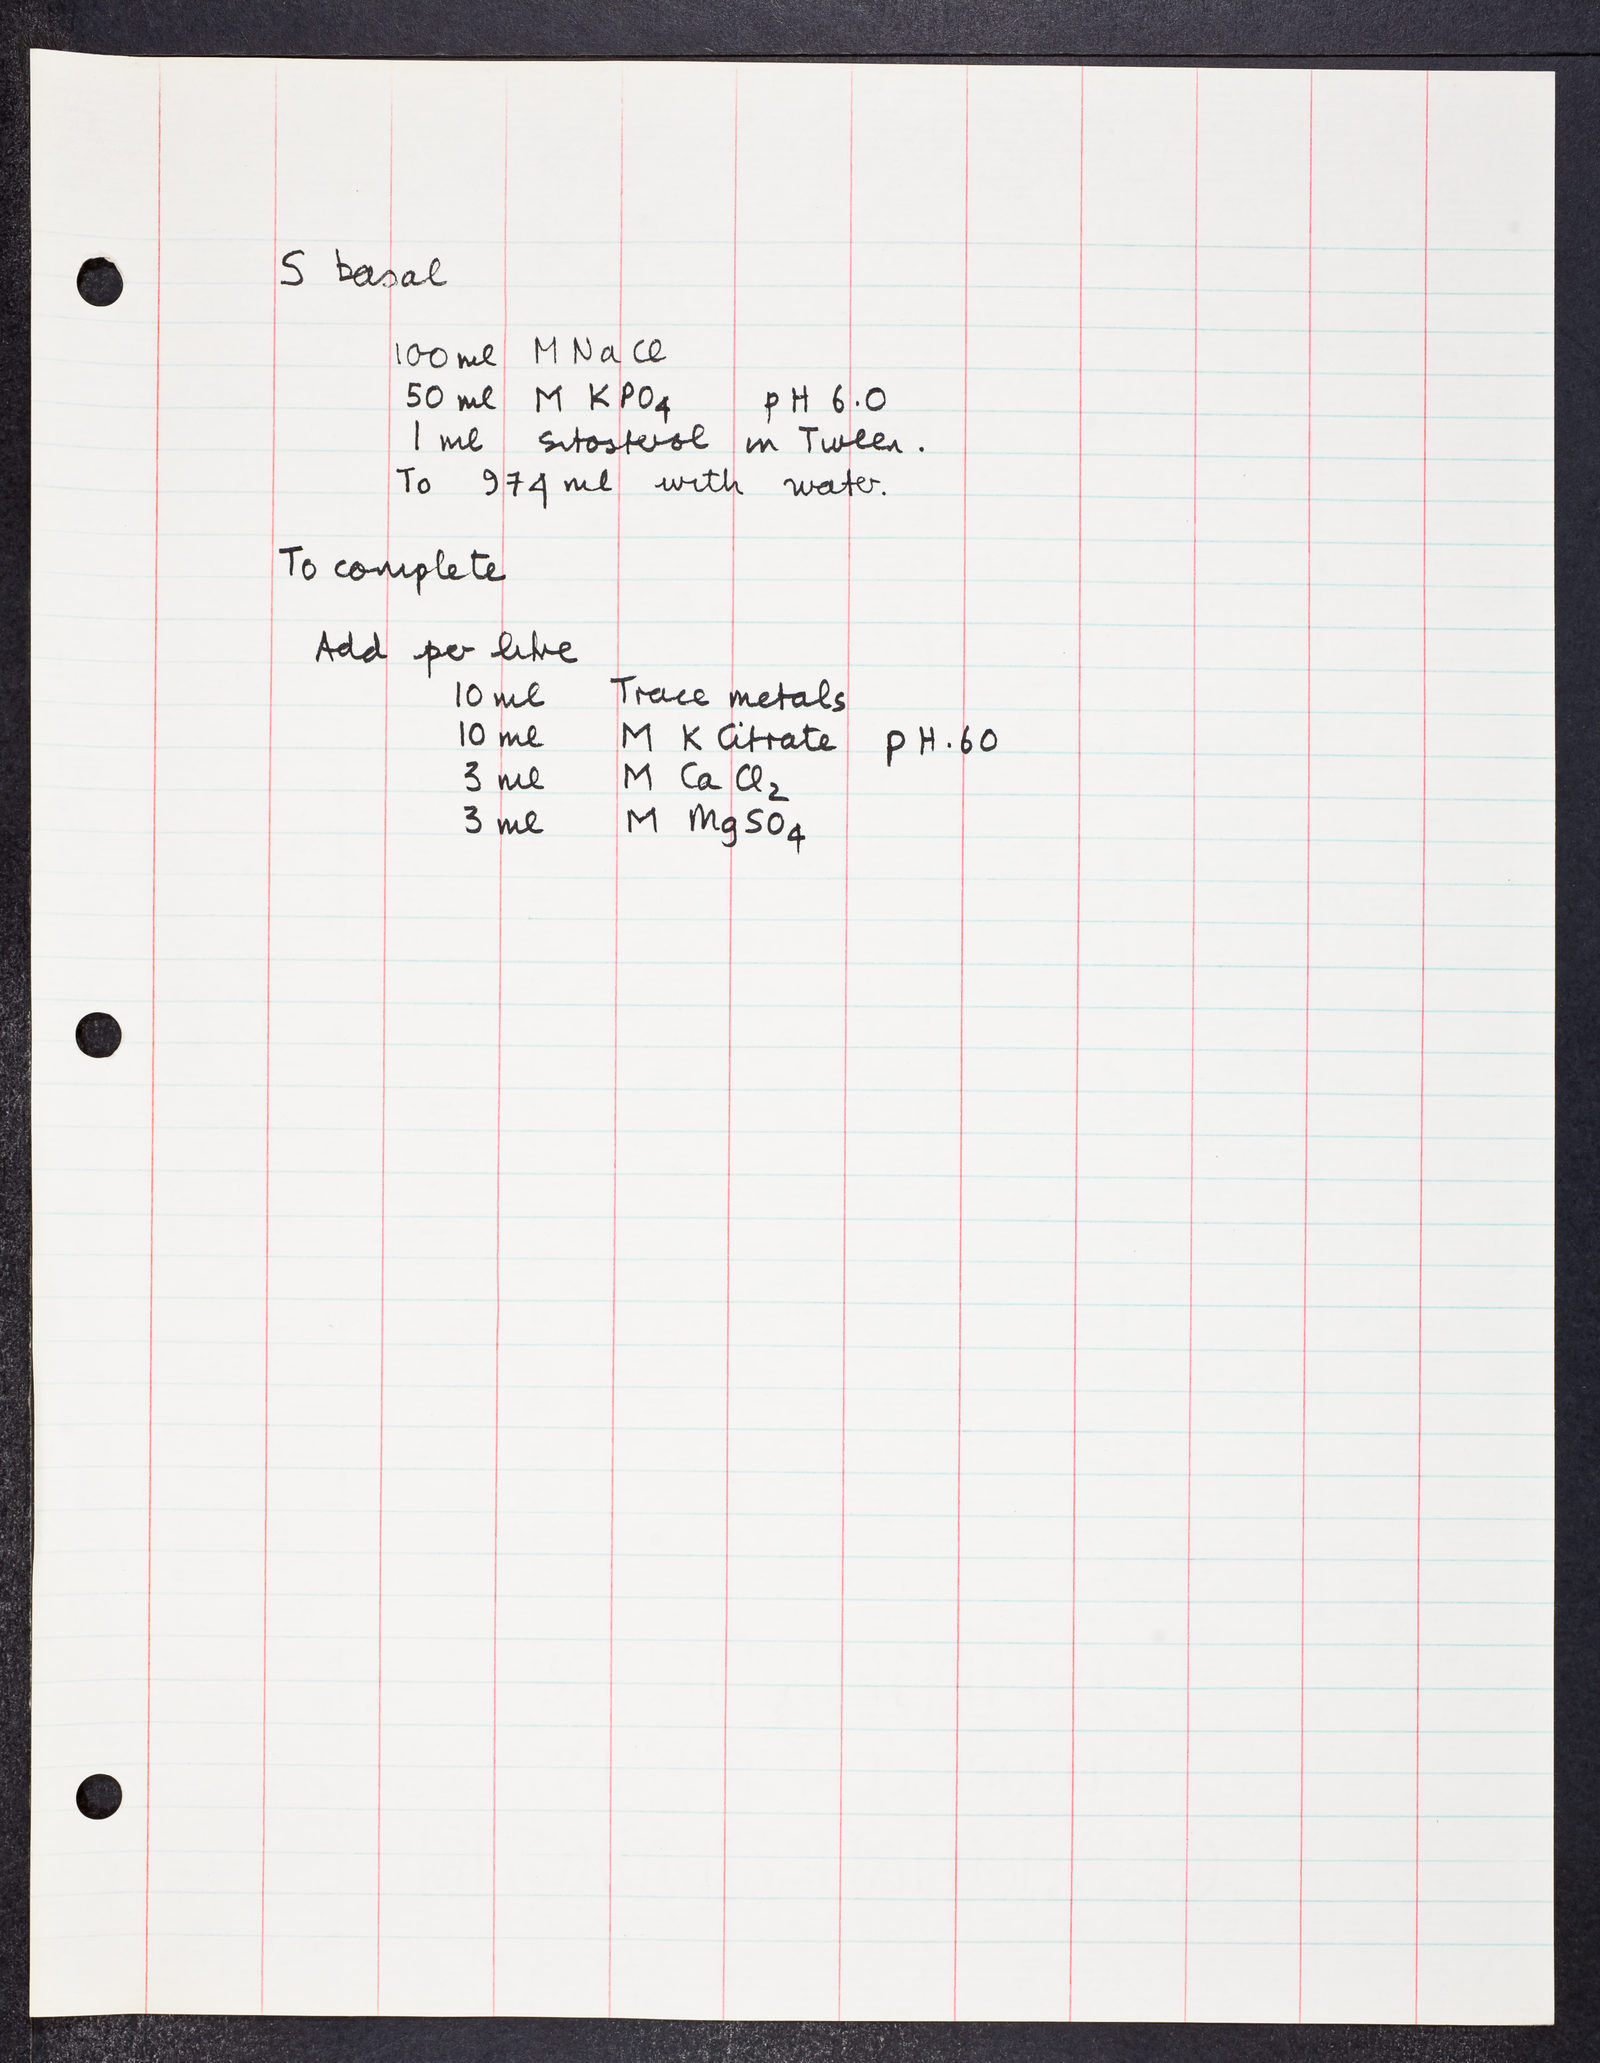 S basal
100 ml M NaCl
50 ml M KPO4 pH 6.0
1 ml sitosterol in Tween.
To 974 ml with water.
To complete
Add per litre
10 ml Trace metals
10 ml M K Citrate pH.60
3 ml M CaCl2
3 ml M MgSO4